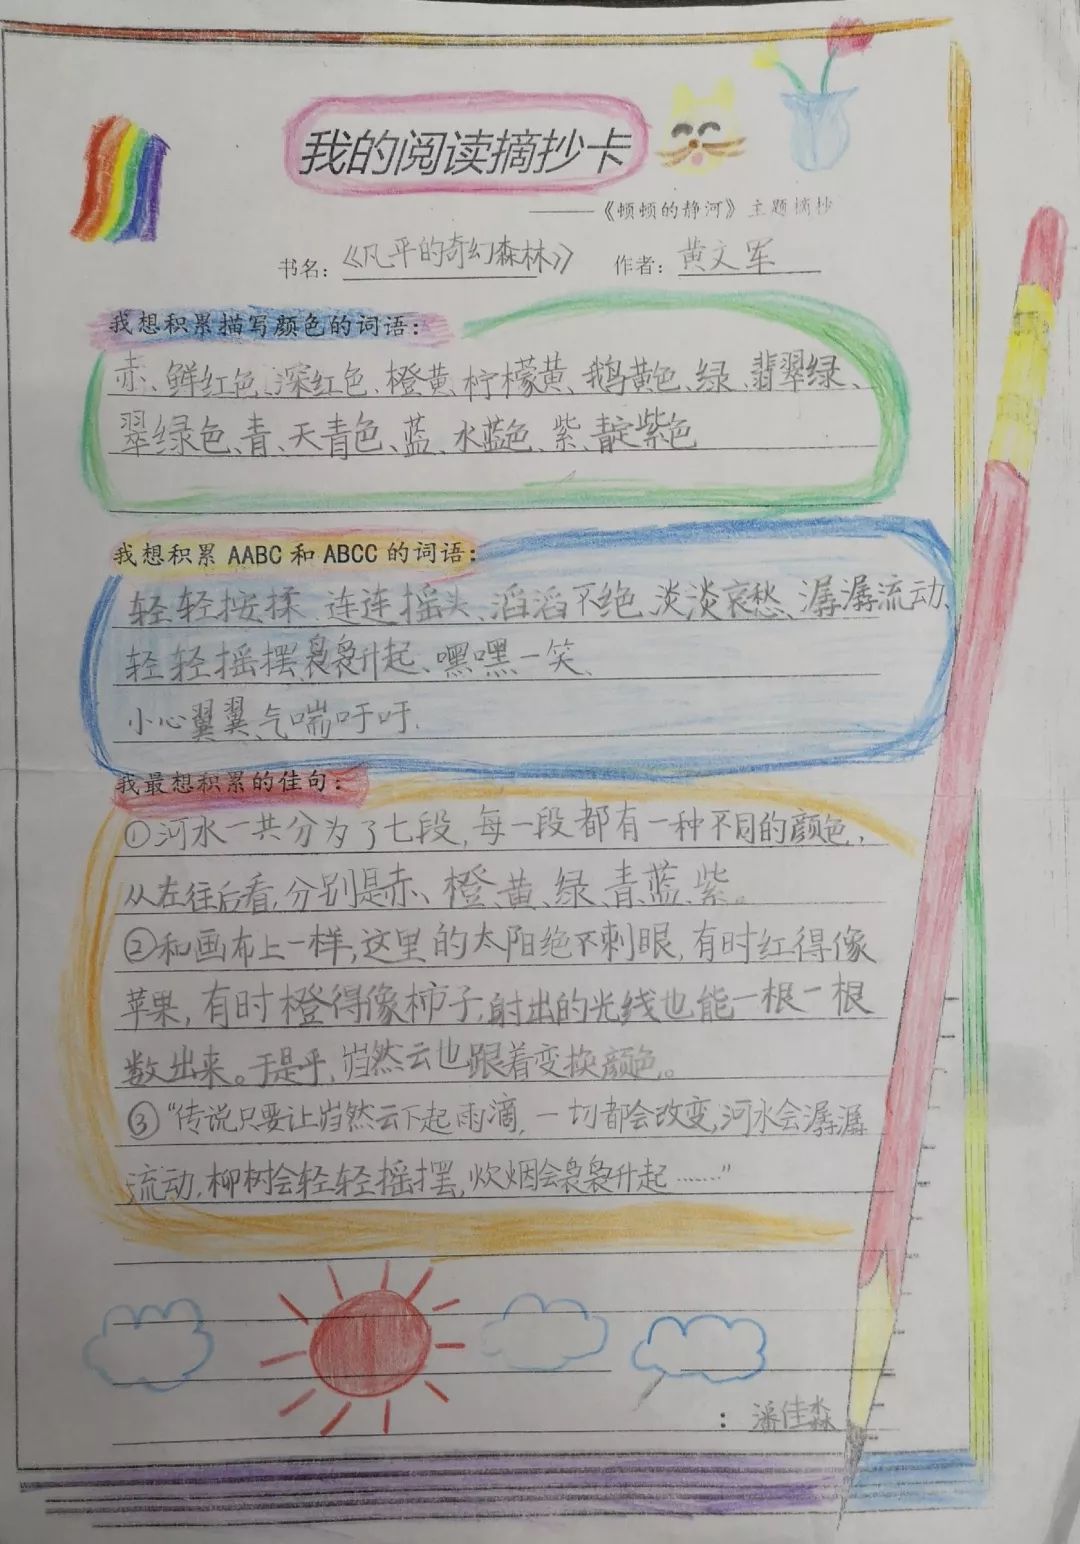 我的阅读摘抄卡
——《顿顿的静河》主题摘抄
书名：《凡平的奇幻森林》 作者：黄文军
我想积累描写颜色的词语：
赤、鲜红色、深红色、橙黄、柠檬黄、鹅黄色、绿、翡翠绿、
翠绿色、青、天青色、蓝、水蓝色、紫、靛紫色
我想积累 AABC 和 ABCC 的词语：
轻轻按揉、连连摇头、滔滔不绝、淡淡哀愁、潺潺流动、
轻轻摇摆、袅袅升起、嘿嘿一笑、
小心翼翼、气喘吁吁、
我最想积累的佳句：
①河水一共分为了七段，每一段都有一种不同的颜色，
从左往后看，分别是赤、橙、黄、绿、青、蓝、紫。
②和画布上一样，这里的太阳绝不刺眼，有时红得像
苹果，有时橙得像柿子，射出的光线也能一根一根
数出来。于是乎，岿然云也跟着变换颜色。
③“传说只要让岿然云下起雨滴，一切都会改变，河水会潺潺
流动，柳树会轻轻摇摆，炊烟会袅袅升起……”
：潘佳淼